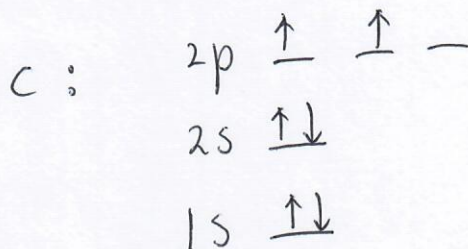 C : 2p ↑ ↑ _
2s ↑↓
1s ↑↓